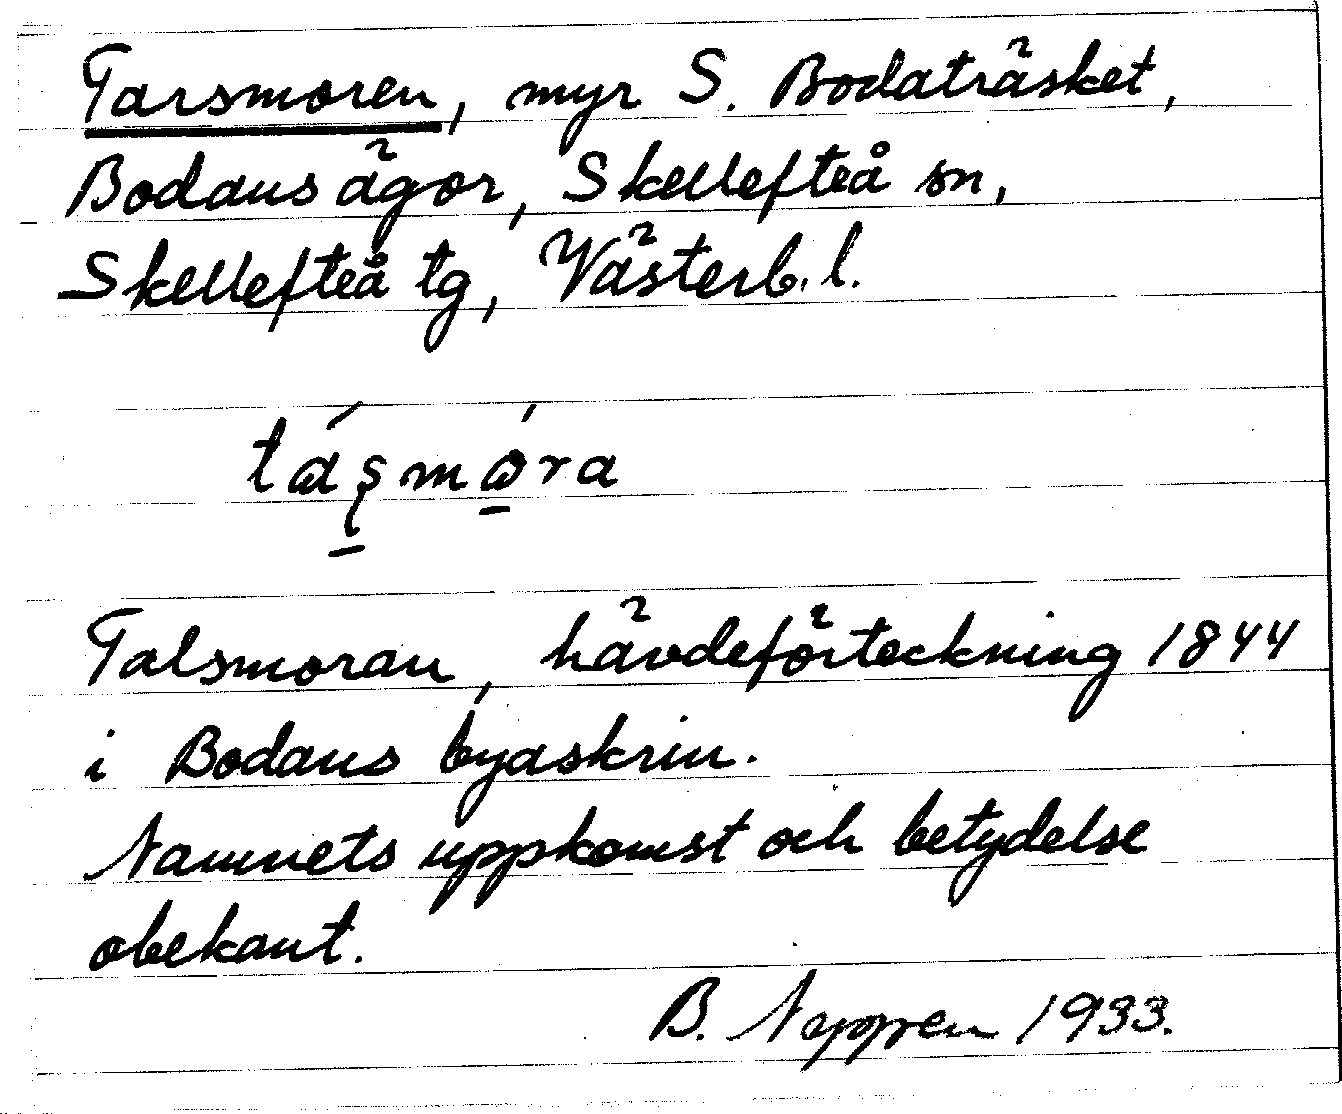 Tarsmoren, myr S. Bodaträsket,
Bodans ägor, Skellefteå sn,
Skellefteå tg, Västerb. l.
Talsmoran, hävdeförteckning 1844
i Bodans byaskrin.
Namnets uppkomst och betydelse
obekant.
B. Neppen 1933.